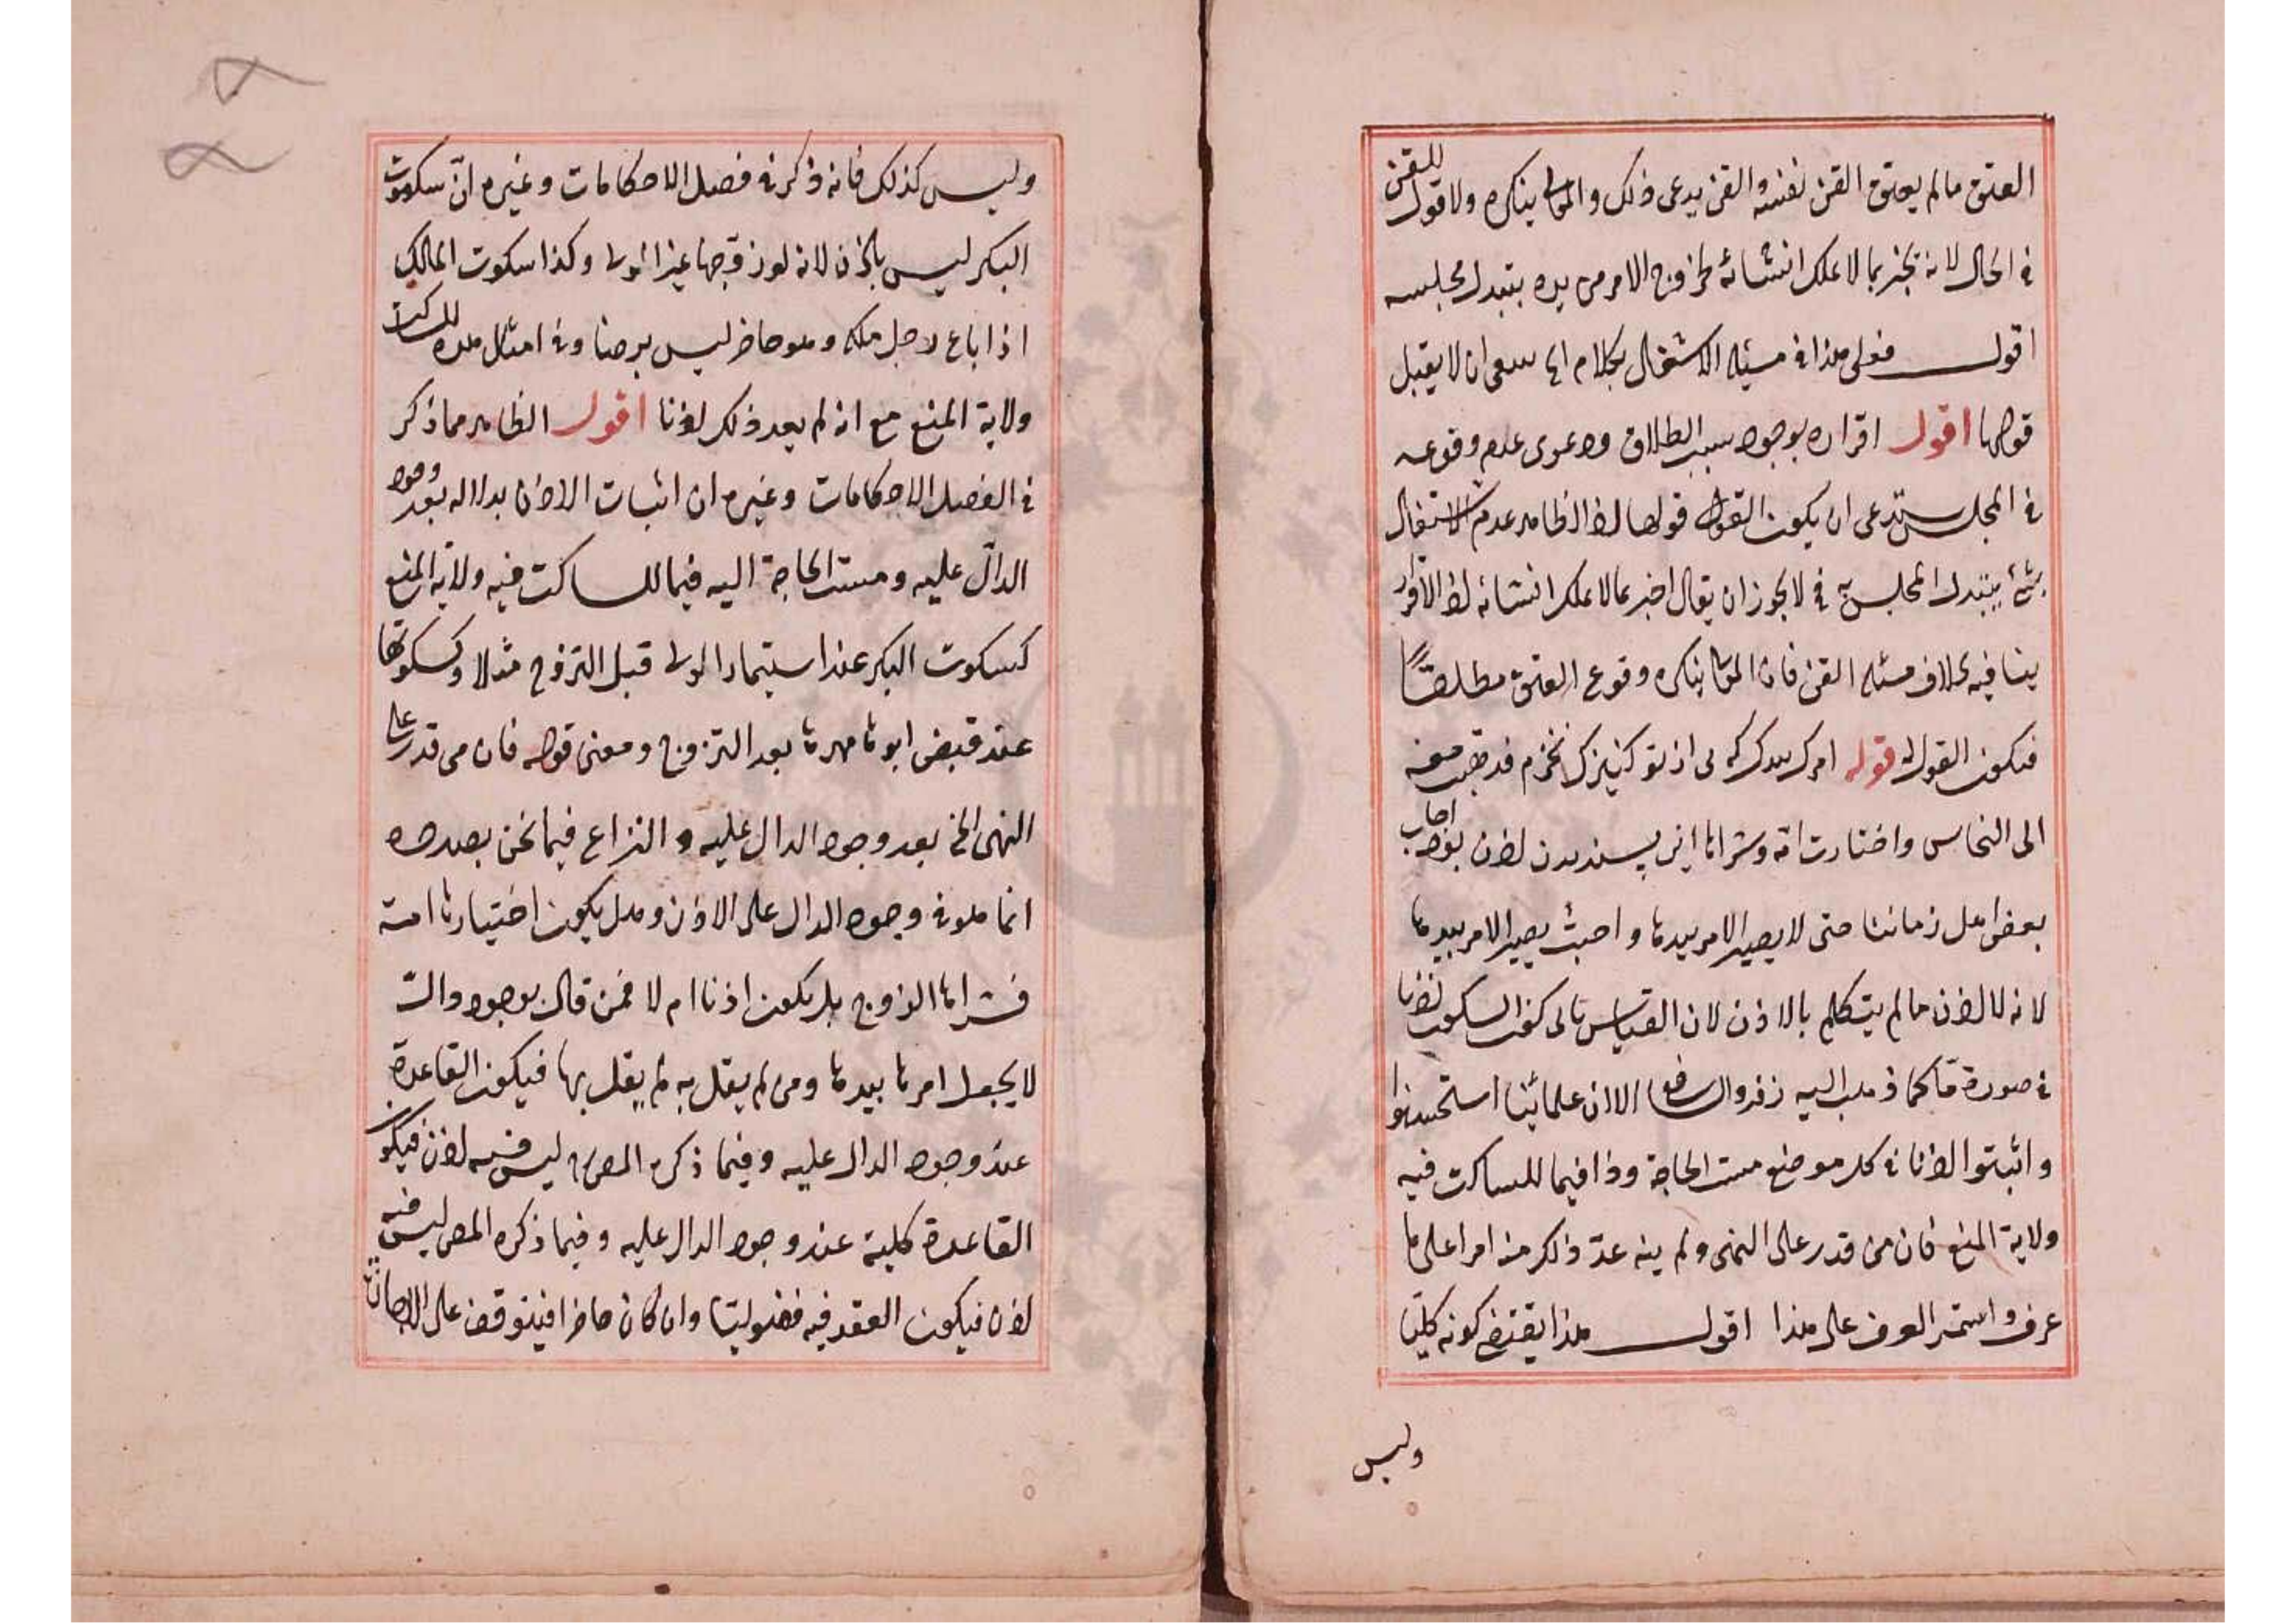 العتق ما لم يعتق القن نفسه والقن يدعى ذلك والمولى ينكره ولا قول للقن
فى الحال لانه يخبر بما لا يملك انشائه لخروج الامر من يده بتبدل مجلسه
اقول فعلى هذا فى مسئلة الاشتغال بكلام ان لا يقبل
قولها اقول اقراره بوجود سبب الطلاق ودعوى عدم وقوعه
فى المجلس يستدعى ان يكون القول قولها اذ الظاهر عدم الاشتغال
بشئ يتبدل المجلس به فلا يجوز ان يقال اخبر بما لا يملك انشائه اذ الاقرار
ينافيه بخلاف مسئلة القن فان المولى ينكره وقوع العتق مطلقا
فيكون القول له قوله امرك بيدك كه بى اذن تو كنيزك نخرم فذهبت معه
الى النخاس واختارت امة وشراها اذن اجاب
بعض اهل زماننا حتى لا يصير الامر بيدها واجبت يصير الامر بيدها
لانه لا اذن ما لم يتكلم بالاذن لان القياس يابى كون السكوت اذنا
فى صورة ما كما ذهب اليه زفر والشافعى الا ان علمائنا استحسنوا
واثبتوا اذنا فى كل موضع مست الحاجة وذا فيما للساكت فيه
ولاية المنع فان من قدر على النهى ولم ينه عد ذلك منه امرا على ما
عرف واستمر العرف على هذا اقول هذا يقتضى كونه كليا
وليس
وليس كذلك فانه ذكر فى فصل الاحكامات وغيره ان سكوت
البكر ليس باذن لانه لو زوجها غير الولى وكذا سكوت المالك
اذا باع رجل ملكه وهو حاضر ليس برضا وفى امثال هذه للساكت
ولاية المنع مع انه لم يعد ذلك اذنا اقول الظاهر مما ذكر
فى الفصل الاحكامات وغيره ان اثبات الاذن بدلالة بعد وجود
الدال عليه ومست الحاجة اليه فيما للساكت فيه ولاية المنع
كسكوت البكر عند استيمار الولى قبل التزوج مثلا وكسكوتها
عند قبض ابوها مهرها بعد التزوج ومعنى قوله فان من قدر على
النهى الخ بعد وجود الدال عليه والنزاع فيما نحن بصدده
انما هو فى وجود الدال على الاذن وهل يكون اختيارها امة
فشراها الزوج هل يكون اذنا ام لا فمن قال بوجود دال
لا يجعل امرها بيدها ومن لم يقل به لم يقل بها فيكون القاعدة
عند وجود الدال عليه وفيما ذكره المص ليس فيه اذن فيكون
القاعدة كلية عند وجود الدال عليه وفيما ذكره المص ليس فيه
اذن فيكون العقد فيه فضوليتا وان كان حاضرا فيتوقف على الاجازة